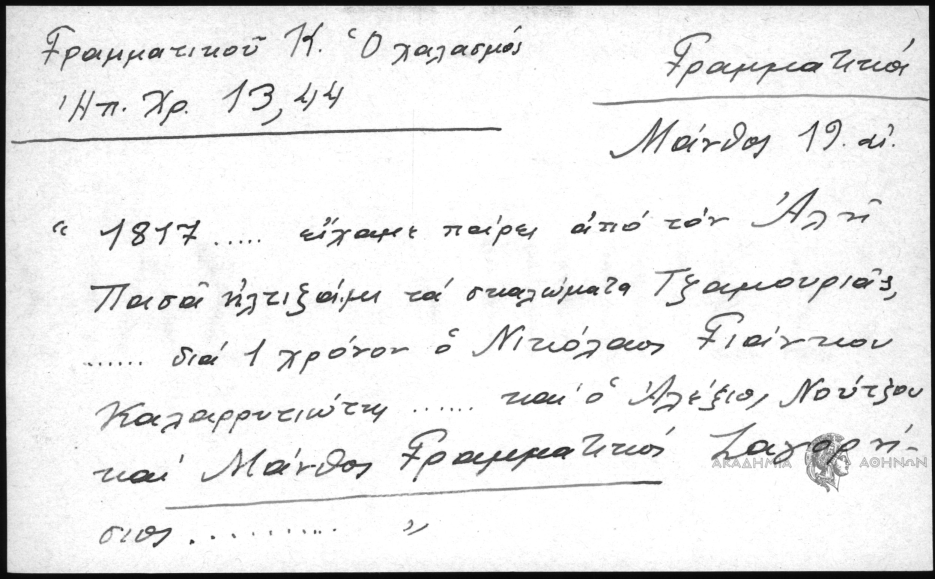 Γραμματικοῦ Κ. Ὁ χαλασμός
Ἠπ. Χρ. 13, 44
Γραμματικός
Μάνθος 19. αἰ.
“ 1817 ..... εἴχαμε πάρει ἀπό τόν Ἀλῆ
Πασᾶ ἠλτιζάμι τά σκαλώματα Τζαμουριᾶς,
...... διά 1 χρόνον ὁ Νικόλαος Γιάνκου
Καλαρρυτιώτης ...... καί ὁ Ἀλέξιος Νούτζου
καί Μάνθος Γραμματικός Ζαγορή-
σιος .......... ”
ΑΚΑΔΗΜΙΑ ΑΘΗΝΩΝ